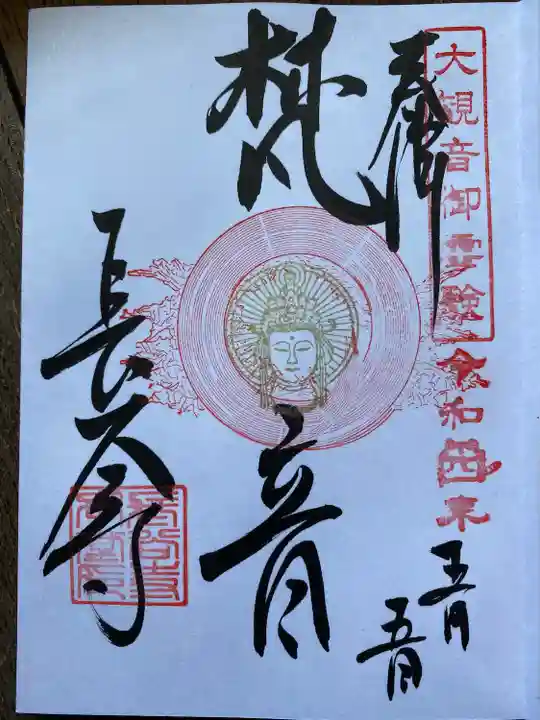 大観音御霊験
令和四年
奉拝
五月
五日
梵音
長谷寺